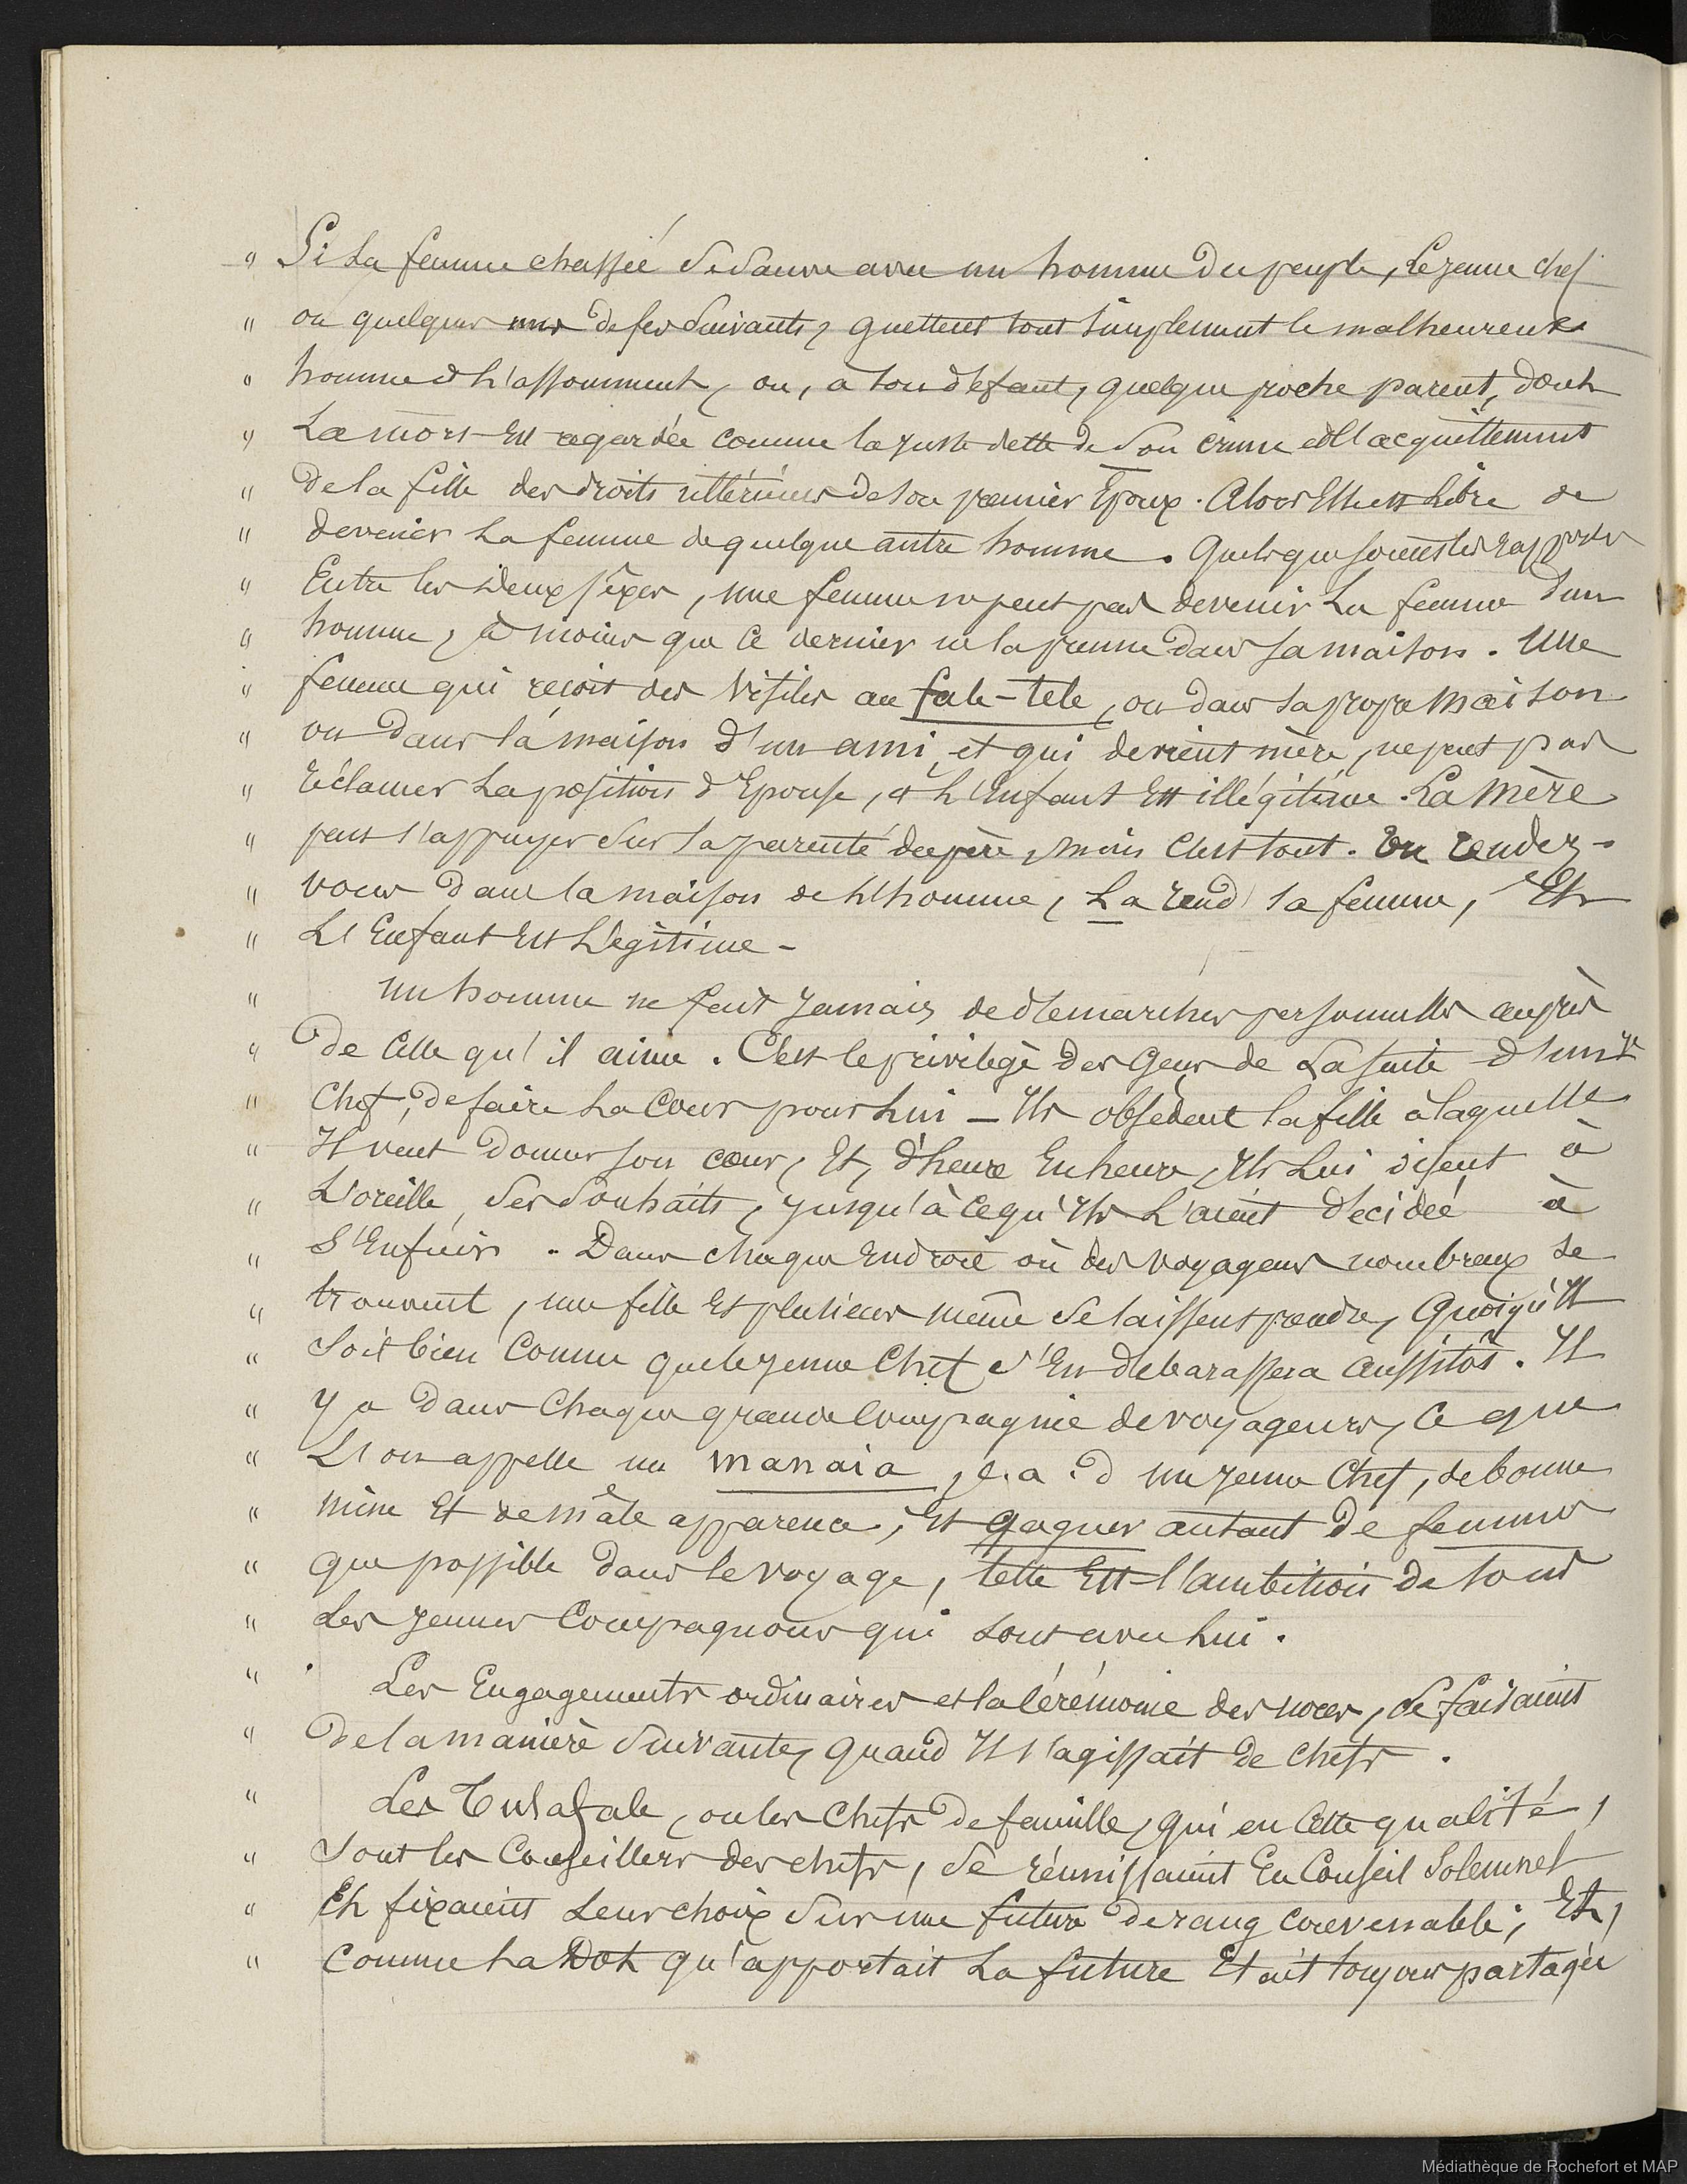 " Si la femme chassée se sauve avec un homme du peuple, le jeune chef
" ou quelques uns de ses suivants, guettent tout simplement le malheureux
" homme et l'assomment, ou, à son défaut, quelque proche parent, dont
" La mort est regardée comme la juste dette de son crime et l'acquittement
" de la fille des droits ultérieurs de son premier Epoux. Alors Elle est libre de
" devenir la femme de quelque autre homme. Quels que soient les rapports
" Entre les deux sexes, une femme ne peut pas devenir la femme d'un
" homme, à moins que ce dernier ne la prenne dans sa maison. Une
" femme qui reçoit des visites au fale-tele, ou dans sa propre maison
" ou dans la maison d'un ami, et qui devient mère, ne peut pas
" réclamer la position d'Epouse, et l'Enfant est illégitime. La mère
" peut s'appuyer sur la parenté du père, mais c'est tout. Un rendez-
" vous dans la maison de l'homme, La rend sa femme, Et
" L'Enfant est Légitime -
" Un homme ne fait jamais de démarches personnelles auprès
" De celle qu'il aime. C'est le privilège des gens de la suite d'un
" Chef, de faire la cour pour lui - Ils obsèdent la fille à laquelle
" Il veut donner son cœur, Et, d'heure En heure, Ils Lui disent à
" L'oreille ses souhaits, jusqu'à ce qu'Ils L'aient décidée à
" S'Enfuir. Dans chaque Endroit où des voyageurs nombreux se
" trouvent, une fille Et plusieurs même se laissent prendre, quoiqu'Il
" Soit bien connu que le jeune Chef s'En debarassera aussitôt. Il
" Y a dans chaque grande Compagnie de voyageurs, ce que
" L'on appelle un manaia, c.a.d un jeune Chef, de bonne
" mine Et de mâle apparence; Et gagner autant de femmes
" que possible dans le voyage, telle Est l'ambition de tous
" Les jeunes Compagnons qui sont avec lui.
" Les Engagements ordinaires et la Cérémonie des noces, se faisaient
" De la manière suivante, quand Il s'agissait de Chefs.
" Les Tulafale, ou les Chefs de famille, qui en cette qualité,
" Sont les Conseillers des chefs, se réunissaient En Conseil Solemnel
" Et fixaient Leur choix sur une future de rang convenable; Et,
" Comme la Dot qu'apportait La future Etait toujours partagée
Médiathèque de Rochefort et MAP